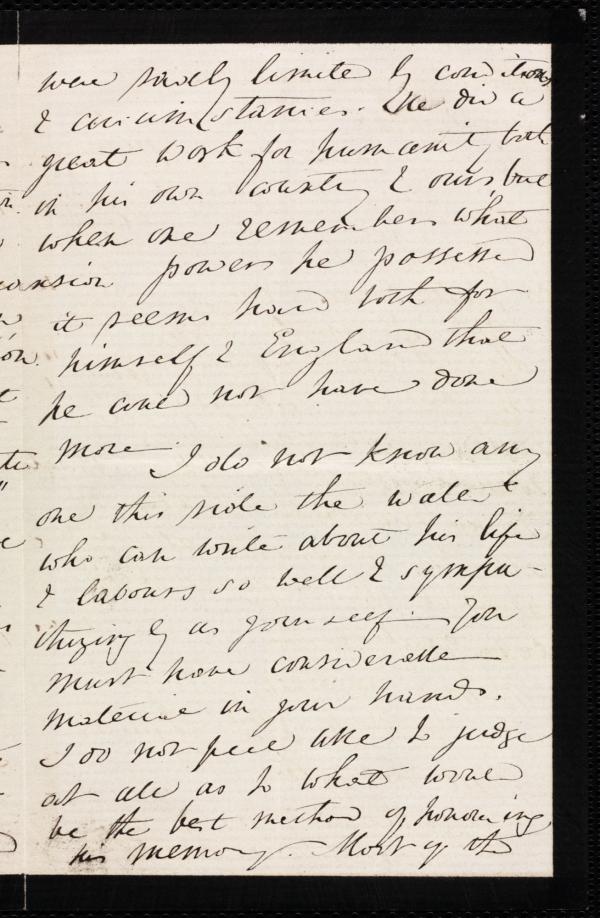 were sadly limited by conditions
& circumstances. He did a
great work for humanity both
in his own country & ours, but
when one remembers what
powers he possessed
it seems hard both for
himself & England that
he could not have done
more. I do not know any
one this side the water
who can write about his life
& labours so well & sympa-
thizingly as yourself. You
must have considerable
material in your hands.
I do not feel able to judge
at all as to what would
be the best method of honouring
his memory. Most of the